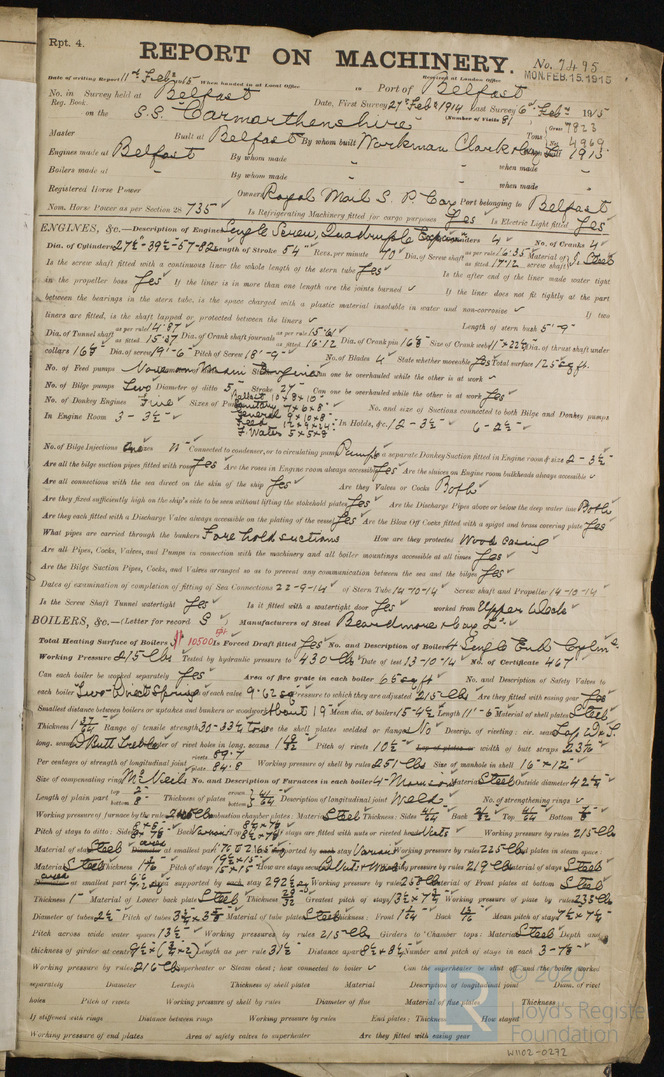 Rpt. 4.
REPORT ON MACHINERY.
No. 7495
MON. FEB. 15. 1915
Date of writing Report 11th Feby 1915 When handed in at Local Office Received at London Office
No. in Survey held at Belfast Port of Belfast
Reg. Book. Date, First Survey 27th Feby 1914 Last Survey 6th Feby 1915
on the S.S. Carmarthenshire (Number of Visits 81)
Gross 7823
Tons Net 4969
Master Built at Belfast By whom built Workman Clark & Coy Ld 1915
Engines made at Belfast By whom made " when made "
Boilers made at " By whom made " when made "
Registered Horse Power Owners Royal Mail S. P. Coy Port belonging to Belfast
Nom. Horse Power as per Section 28 735 Is Refrigerating Machinery fitted for cargo purposes Yes Is Electric Light fitted Yes
ENGINES, &c.—Description of Engines Single Screw, Quadruple Expansion No. of Cylinders 4 No. of Cranks 4
Dia. of Cylinders 27½-39½-57-82 Length of Stroke 54 Revs. per minute 70 Dia. of Screw shaft as per rule 16.35 as fitted 17.12 Material of screw shaft I. Steel
Is the screw shaft fitted with a continuous liner the whole length of the stern tube Yes Is the after end of the liner made water tight
in the propeller boss Yes If the liner is in more than one length are the joints burned If the liner does not fit tightly at the part
between the bearings in the stern tube, is the space charged with a plastic material insoluble in water and non-corrosive If two
liners are fitted, is the shaft lapped or protected between the liners Length of stern bush 5'-9"
Dia. of Tunnel shaft as per rule 14.87 as fitted 15.87 Dia. of Crank shaft journals as per rule 15.61 as fitted 16.12 Dia. of Crank pin 16⅛ Size of Crank webs Dia. of thrust shaft under
collars 16⅛ Dia. of screw 19'-6" Pitch of Screw 18'-9" No. of Blades 4 State whether moveable Yes Total surface 125 sq ft.
No. of Feed pumps Can one be overhauled while the other is at work
No. of Bilge pumps Two Diameter of ditto 5 Stroke 27 Can one be overhauled while the other is at work Yes
No. of Donkey Engines Five Sizes of Pumps Ballast 10 x 8 x 10 No. and size of Suctions connected to both Bilge and Donkey pumps
Sanitary 7 x 6 x 8
In Engine Room 3 - 3½ General 9 x 10 x 8 In Holds, &c. 12 - 3½ 6 - 2½
Feed 12 x 9 x 24
F. Water 5 x 5 x 8
No. of Bilge Injections One sizes 11" Connected to condenser, or to circulating pump Pump Is a separate Donkey Suction fitted in Engine room & size 2 - 3½
Are all the bilge suction pipes fitted with roses Yes Are the roses in Engine room always accessible Yes Are the sluices on Engine room bulkheads always accessible
Are all connections with the sea direct on the skin of the ship Yes Are they Valves or Cocks Both
Are they fixed sufficiently high on the ship's side to be seen without lifting the stokehold plates Yes Are the Discharge Pipes above or below the deep water line Both
Are they each fitted with a Discharge Valve always accessible on the plating of the vessel Yes Are the Blow Off Cocks fitted with a spigot and brass covering plate Yes
What pipes are carried through the bunkers Fore hold suctions How are they protected Wood casing
Are all Pipes, Cocks, Valves, and Pumps in connection with the machinery and all boiler mountings accessible at all times Yes
Are the Bilge Suction Pipes, Cocks, and Valves arranged so as to prevent any communication between the sea and the bilges Yes
Dates of examination of completion of fitting of Sea Connections 22-9-14 of Stern Tube 14-10-14 Screw shaft and Propeller 14-10-14
Is the Screw Shaft Tunnel watertight Yes Is it fitted with a watertight door Yes worked from Upper Deck
BOILERS, &c.—(Letter for record S) Manufacturers of Steel Beardmore & Coy Ld
Total Heating Surface of Boilers 10500 Is Forced Draft fitted Yes No. and Description of Boilers 4 Single End Cylind.
Working Pressure 215 lbs Tested by hydraulic pressure to 430 lbs Date of test 13-10-14 No. of Certificate 467
Can each boiler be worked separately Yes Area of fire grate in each boiler 65 sq ft No. and Description of Safety Valves to
each boiler Two Direct Spring Area of each valve 9.62 sq Pressure to which they are adjusted 215 lbs Are they fitted with easing gear Yes
Smallest distance between boilers or uptakes and bunkers or woodwork About 19" Mean dia. of boilers 15-4½ Length 11'-6 Material of shell plates Steel
Thickness Range of tensile strength 30-33½ tons Are the shell plates welded or flanged No Descrip. of riveting: cir. seams Lap
long. seams D Butt Treble Diameter of rivet holes in long. seams Pitch of rivets 10½ Lap of plates or width of butt straps
Per centages of strength of longitudinal joint rivets 89.7 plate 84.8 Working pressure of shell by rules 251 lbs Size of manhole in shell 16" x 12"
Size of compensating ring McNeils No. and Description of Furnaces in each boiler 4- Morison Material Steel Outside diameter 42¼
Length of plain part top 2" bottom 8" Thickness of plates crown bottom Description of longitudinal joint Weld No. of strengthening rings
Working pressure of furnace by the rules Combustion chamber plates: Material Steel Thickness: Sides Back Top Bottom
Pitch of stays to ditto: Sides Back Top If stays are fitted with nuts or riveted heads Nuts Working pressure by rules 215 lbs
Material of stays Steel area at smallest part Area supported by each stay Various Working pressure by rules 225 lbs End plates in steam space:
Material Steel Thickness Pitch of stays How are stays secured Working pressure by rules 219 lbs Material of stays Steel
area at smallest part Area supported by each stay Working pressure by rules Material of Front plates at bottom Steel
Thickness 1" Material of Lower back plate Steel Thickness Greatest pitch of stays Working pressure of plate by rules 235 lbs
Diameter of tubes 2½ Pitch of tubes Material of tube plates Steel Thickness: Front Back Mean pitch of stays
Pitch across wide water spaces 13½ Working pressures by rules 215 lbs Girders to Chamber tops: Material Steel Depth and
thickness of girder at centre Length as per rule 31½ Distance apart Number and pitch of stays in each
Working pressure by rules 216 lbs Superheater or Steam chest; how connected to boiler Can the superheater be shut off and the boiler worked
separately Diameter Length Thickness of shell plates Material Description of longitudinal joint Diam. of rivet
holes Pitch of rivets Working pressure of shell by rules Diameter of flue Material of flue plates Thickness
If stiffened with rings Distance between rings Working pressure by rules End plates: Thickness How stayed
Working pressure of end plates Area of safety valves to superheater Are they fitted with easing gear
© 2020
Lloyd's Register
Foundation
W1102-0272